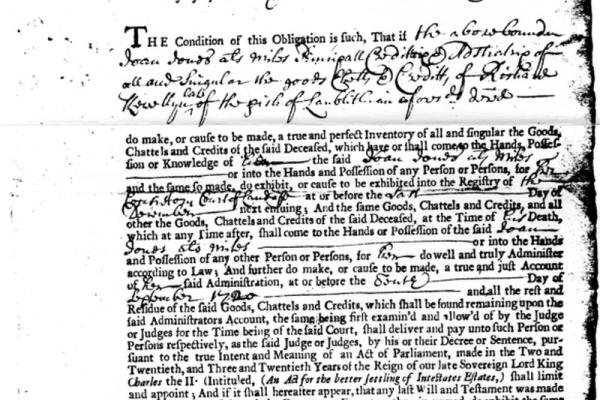 THE Condition of this Obligation is such, That if the abovebounden
Joan Jones als Miles Principall Creditrix & Admstratrix of
all and Singular the goods Chattls & Credits, of Richard
Llewellyn late of the pish of Lanblithian aforesd. decd
do make, or cause to be made, a true and perfect Inventory of all and singular the Goods,
Chattels and Credits of the said Deceased, which have or shall come to the Hands, Posses-
sion or Knowledge of the said Joan Jones als Miles
or into the Hands and Possession of any Person or Persons, for her
and the same so made, do exhibit, or cause to be exhibited into the Registry of the
Court of Landaff at or before the last Day of
November next ensuing; And the same Goods, Chattels and Credits, and all
other the Goods, Chattels and Credits of the said Deceased, at the Time of his Death,
which at any Time after, shall come to the Hands or Possession of the said Joan
Jones als Miles or into the Hands
and Possession of any other Person or Persons, for her do well and truly Administer
according to Law; And further do make, or cause to be made, a true and just Account
of her said Administration, at or before the Day of
September 1720 and, all the rest and
Residue of the said Goods, Chattels and Credits, which shall be found remaining upon the
said Administrators Account, the same being first examin'd and allow'd of by the Judge
or Judges for the Time being of the said Court, shall deliver and pay unto such Person or
Persons respectively, as the said Judge or Judges, by his or their Decree or Sentence, pur-
suant to the true Intent and Meaning of an Act of Parliament, made in the Two and
Twentieth, and Three and Twentieth Years of the Reign of our late Sovereign Lord King
Charles the II. (Intituled, (An Act for the better settling of Intestates Estates,) shall limit
and appoint; And if it shall hereafter appear, that any last Will and Testament was made